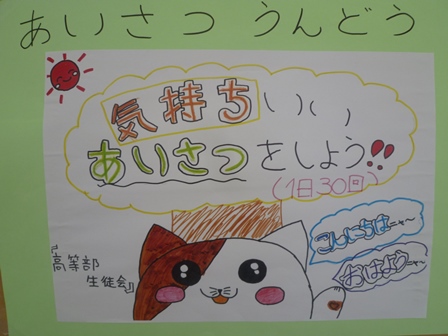 あいさつ うんどう
気持ちいい
あいさつをしよう!!
(1日30回)
こんにちはニャ〜
おはようニャ〜
『高等部
生徒会』